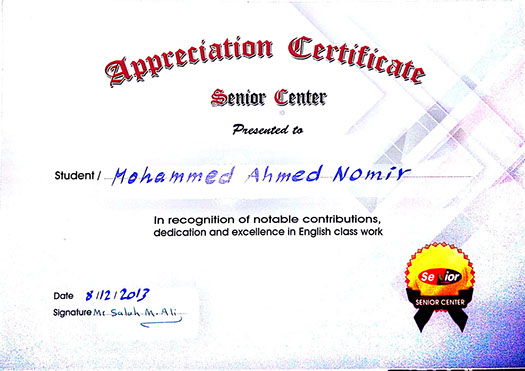 Appreciation Certificate
Senior Center
Presented to
Student / Mohammed Ahmed Nomir
In recognition of notable contributions,
dedication and excellence in English class work
Date 8/12/2013
Signature Mr. Salah M. Ali
Senior
SENIOR CENTER